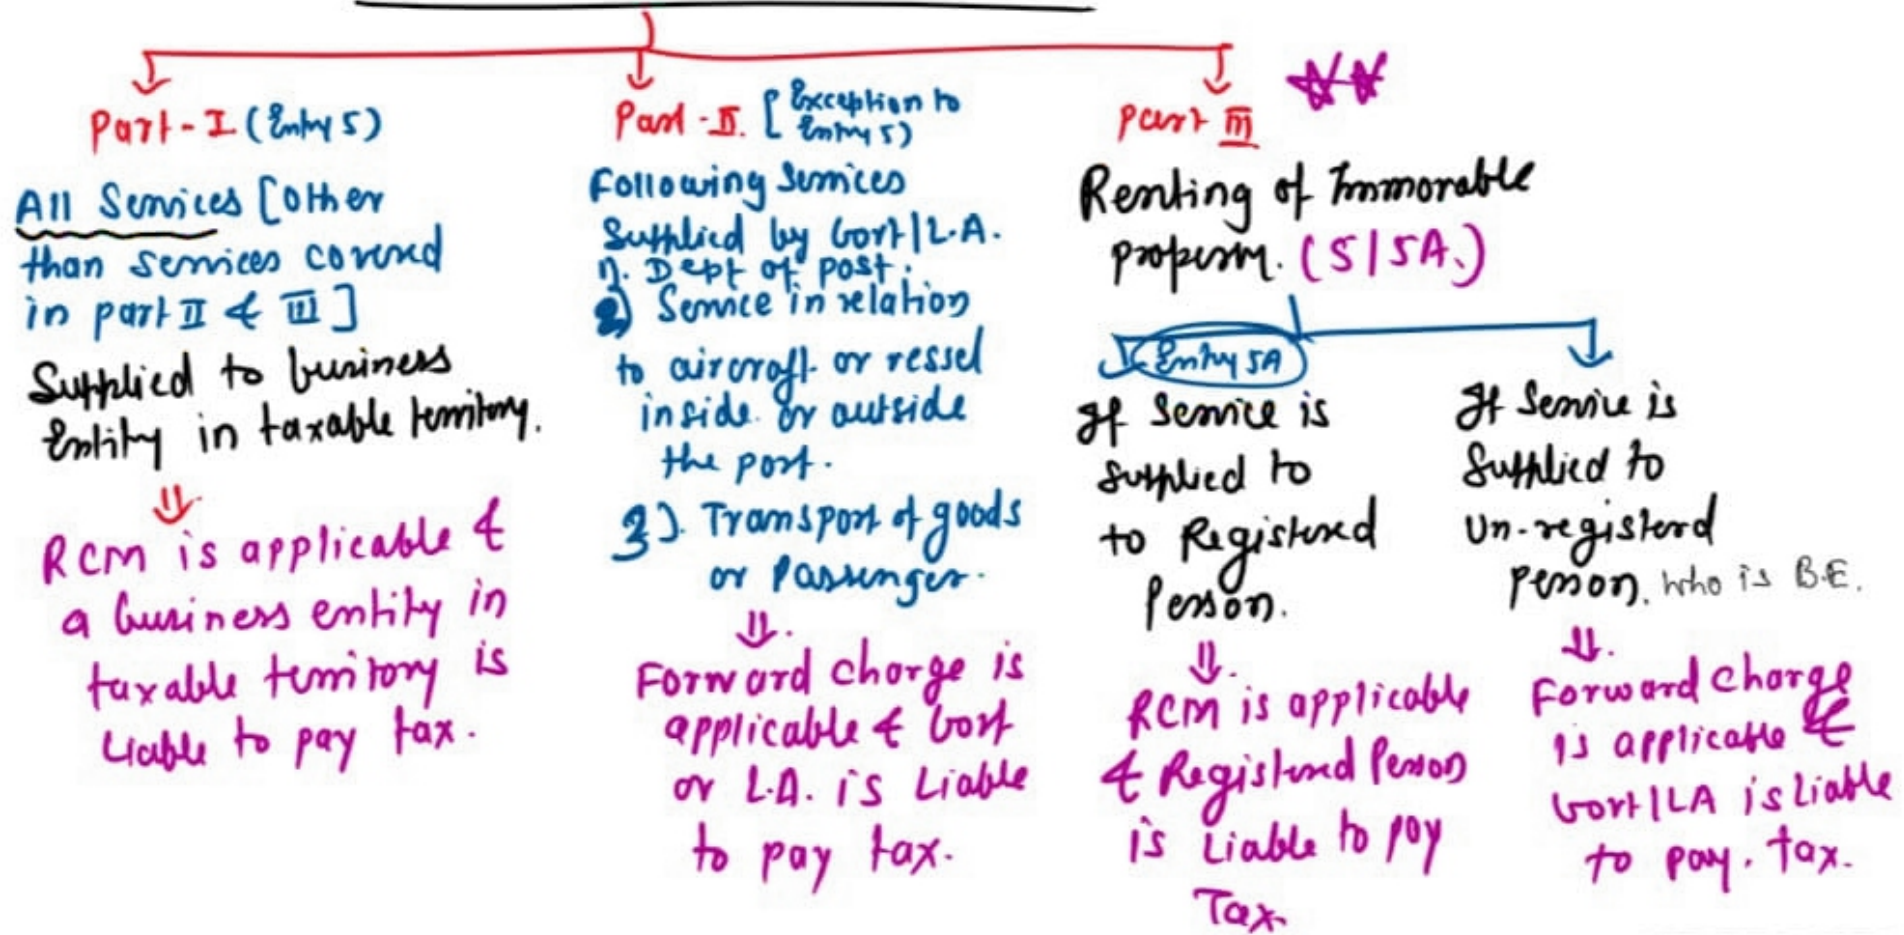 Part-I (Entry 5)
All Services [other
than services covered
in part II & III]
Supplied to business
Entity in taxable territory.
⇓
RCM is applicable &
a business entity in
taxable territory is
Liable to pay tax.
Part-II. [Exception to
Entry 5)
Following Services
Supplied by Govt|L.A.
1). Dept of post.
2) Service in relation
to aircraft or vessel
inside or outside
the port.
3). Transport of goods
or Passenger.
⇓.
Forward charge is
applicable & Govt
or L.A. is Liable
to pay tax.
Part III
Renting of Immovable
property. (5|5A.)
Entry 5A
If Service is
supplied to
to Registered
Person.
⇓
RCM is applicable
& Registered Person
is Liable to pay
Tax.
If Service is
Supplied to
Un-registerd
Person. who is B.E.
⇓.
Forward charge
is applicable &
Govt|LA is Liable
to pay. tax.